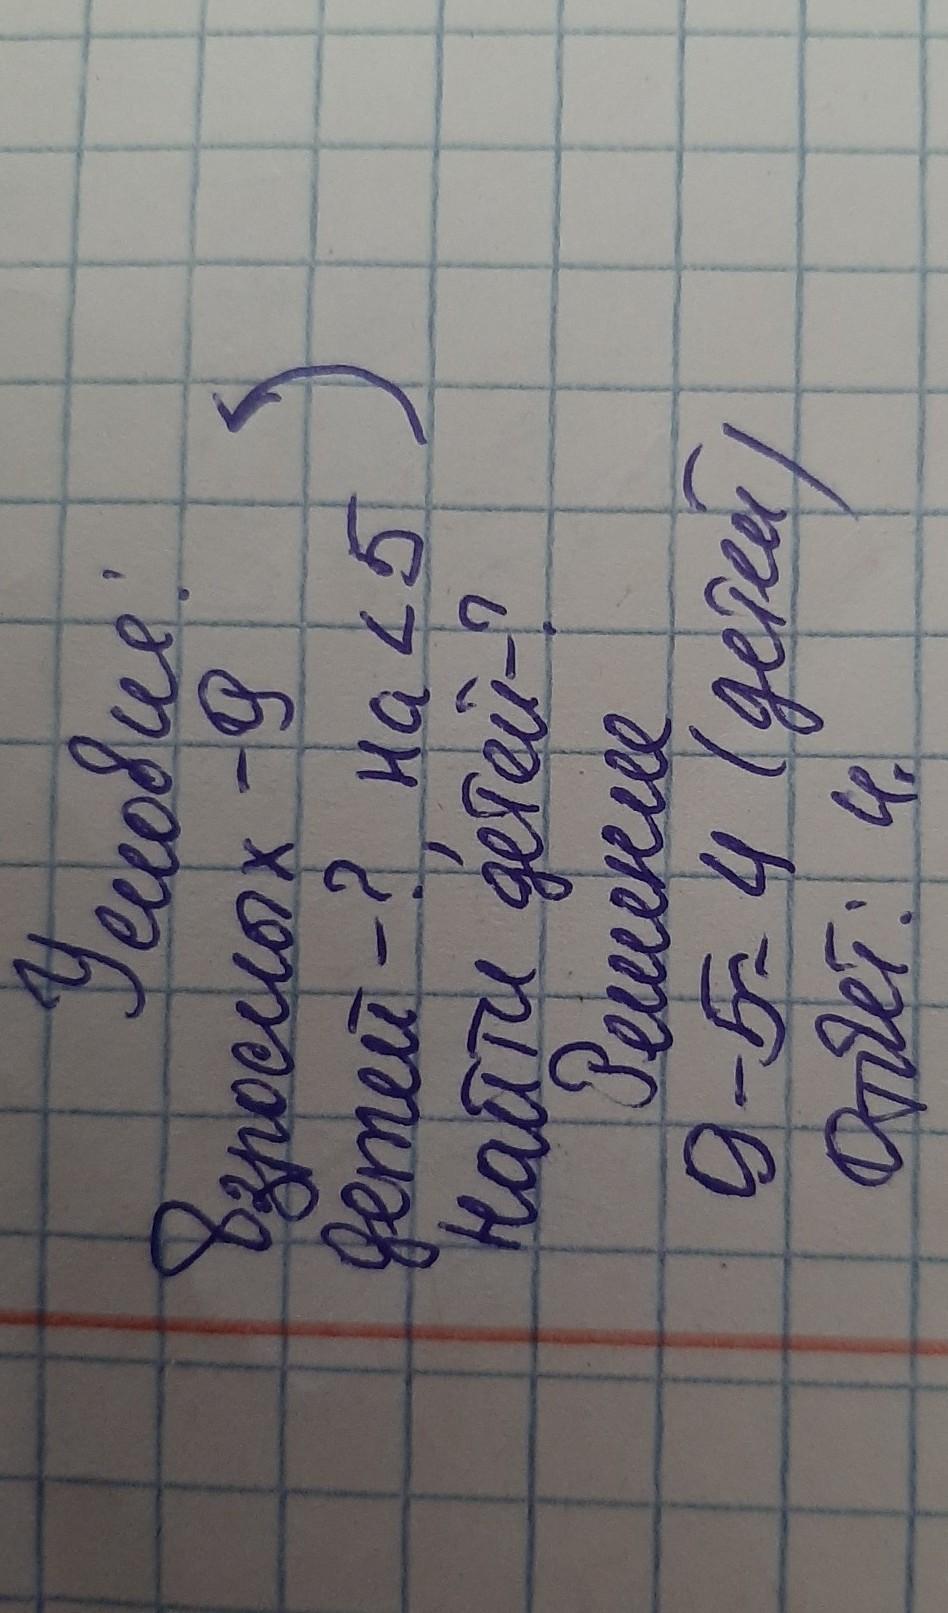 Условие:
Взрослых - 9
Детей - ? на < 5
Найти детей - ?
Решение
9 - 5 = 4 (детей)
Ответ: 4.